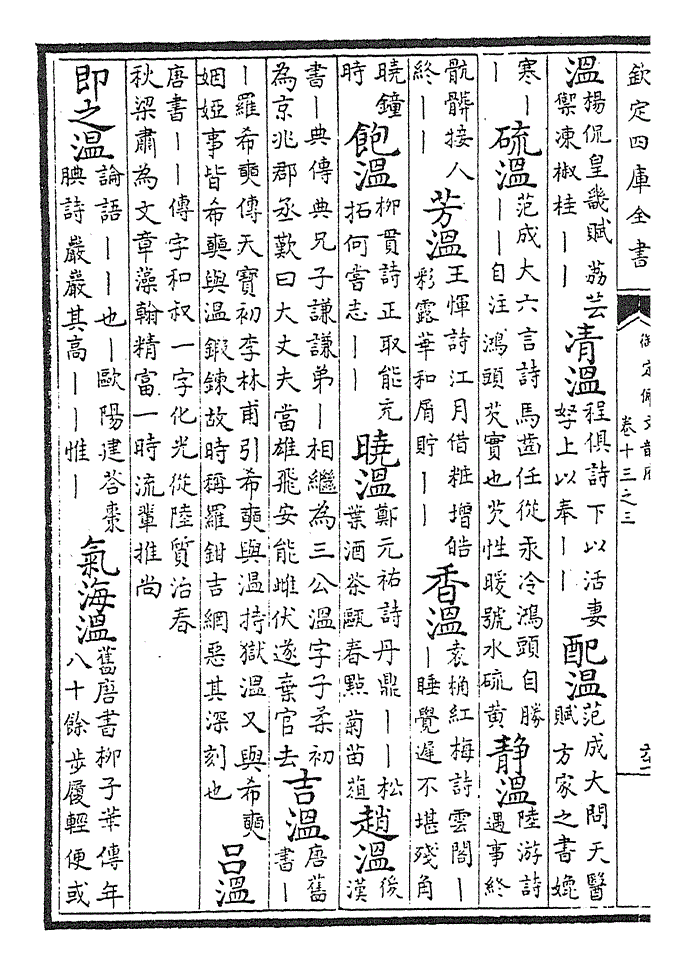 欽定四庫全書
御定佩文韻府
卷十三之三
溫楊侃皇畿賦荔芸禦凍椒桂丨丨清溫程俱詩下以活妻孥上以奉丨丨配溫范成大問天醫賦方家之書媲
寒丨丨硫溫范成大六言詩馬齒任從汞冷鴻頭自勝丨丨自注鴻頭芡實也芡性暖號水硫黄静溫陸游詩遇事終
骯髒接人終丨丨芳溫王惲詩江月借粧增皓彩露華和屑貯丨丨香溫袁桷紅梅詩雲閣丨丨睡覺遲不堪殘角
曉鐘時飽溫柳貫詩正取能充拓何嘗志丨丨曉溫鄭元祐詩丹鼎丨丨松葉酒茶甌春點菊苗葅趙溫後漢
書丨典傳典兄子謙謙弟丨相繼為三公溫字子柔初為京兆郡丞歎曰大丈夫當雄飛安能雌伏遂棄官去吉溫唐舊書丨
丨羅希奭傳天寶初李林甫引希奭與温持獄溫又與希奭姻婭事皆希奭與溫鍛鍊故時稱羅鉗吉網惡其深刻也呂溫
唐書丨丨傳字和叔一字化光從陸質治春秋梁肅為文章藻翰精富一時流輩推尚
即之溫論語丨丨也丨歐陽建答棗腆詩嚴嚴其高丨丨惟丨氣海溫舊唐書柳子華傳年八十餘步履輕便或